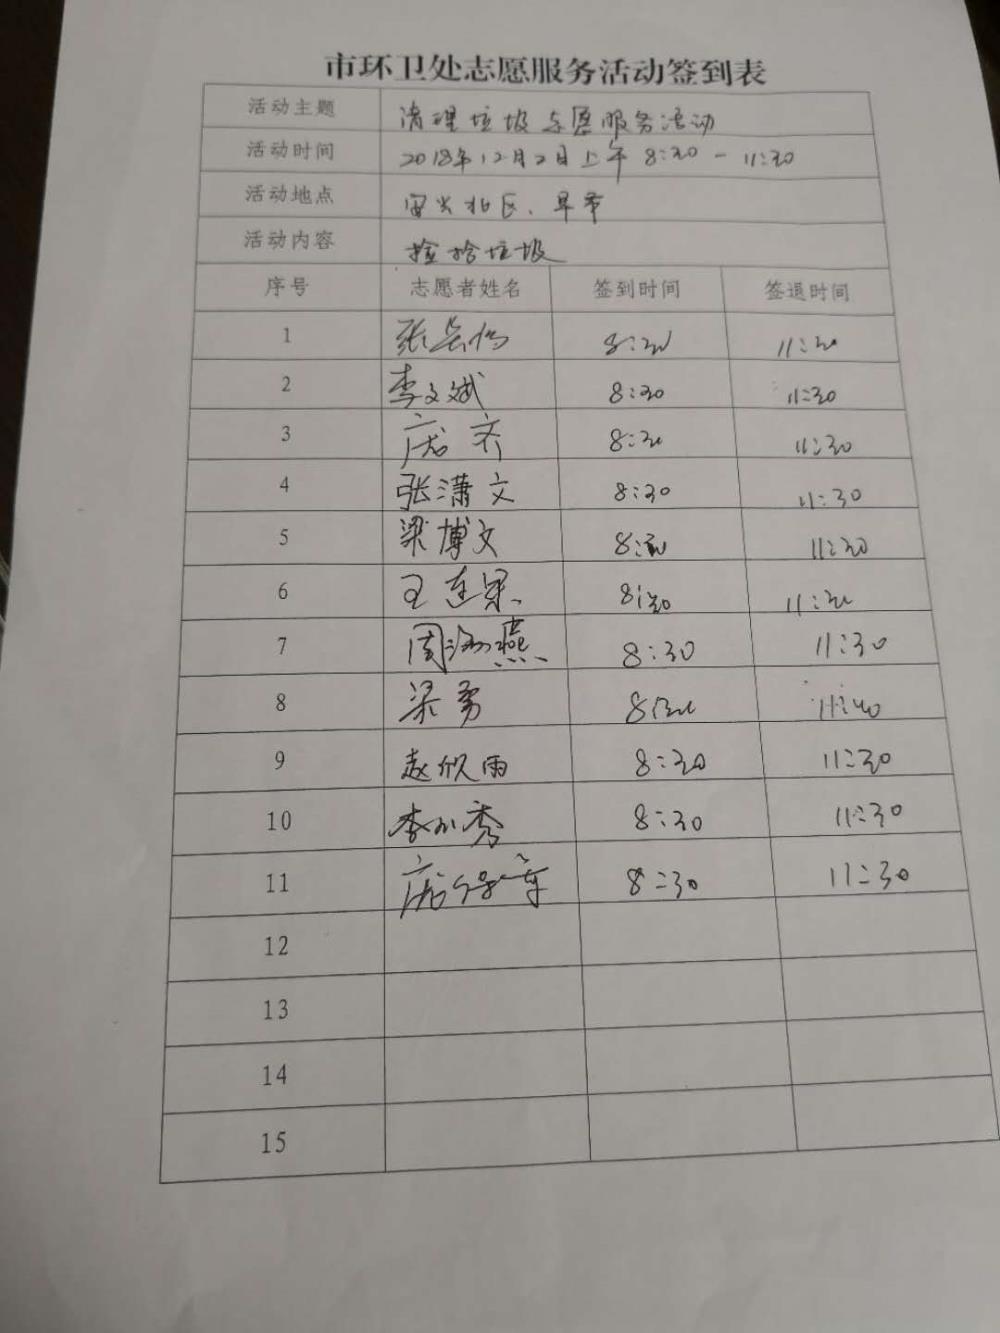 市环卫处志愿服务活动签到表
活动主题 清理垃圾志愿服务活动
活动时间 2018年12月2日上午 8:30-11:30
活动地点 北区、早市
活动内容 捡拾垃圾
序号 志愿者姓名 签到时间 签退时间
1 张 8:30 11:30
2 李文斌 8:30 11:30
3 庞齐 8:30 11:30
4 张潇文 8:30 11:30
5 梁博文 8:30 11:30
6 王连果 8:30 11:30
7 周海燕 8:30 11:30
8 梁勇 8:30 11:40
9 赵欣雨 8:30 11:30
10 李小秀 8:30 11:30
11 庞 8:30 11:30
12
13
14
15